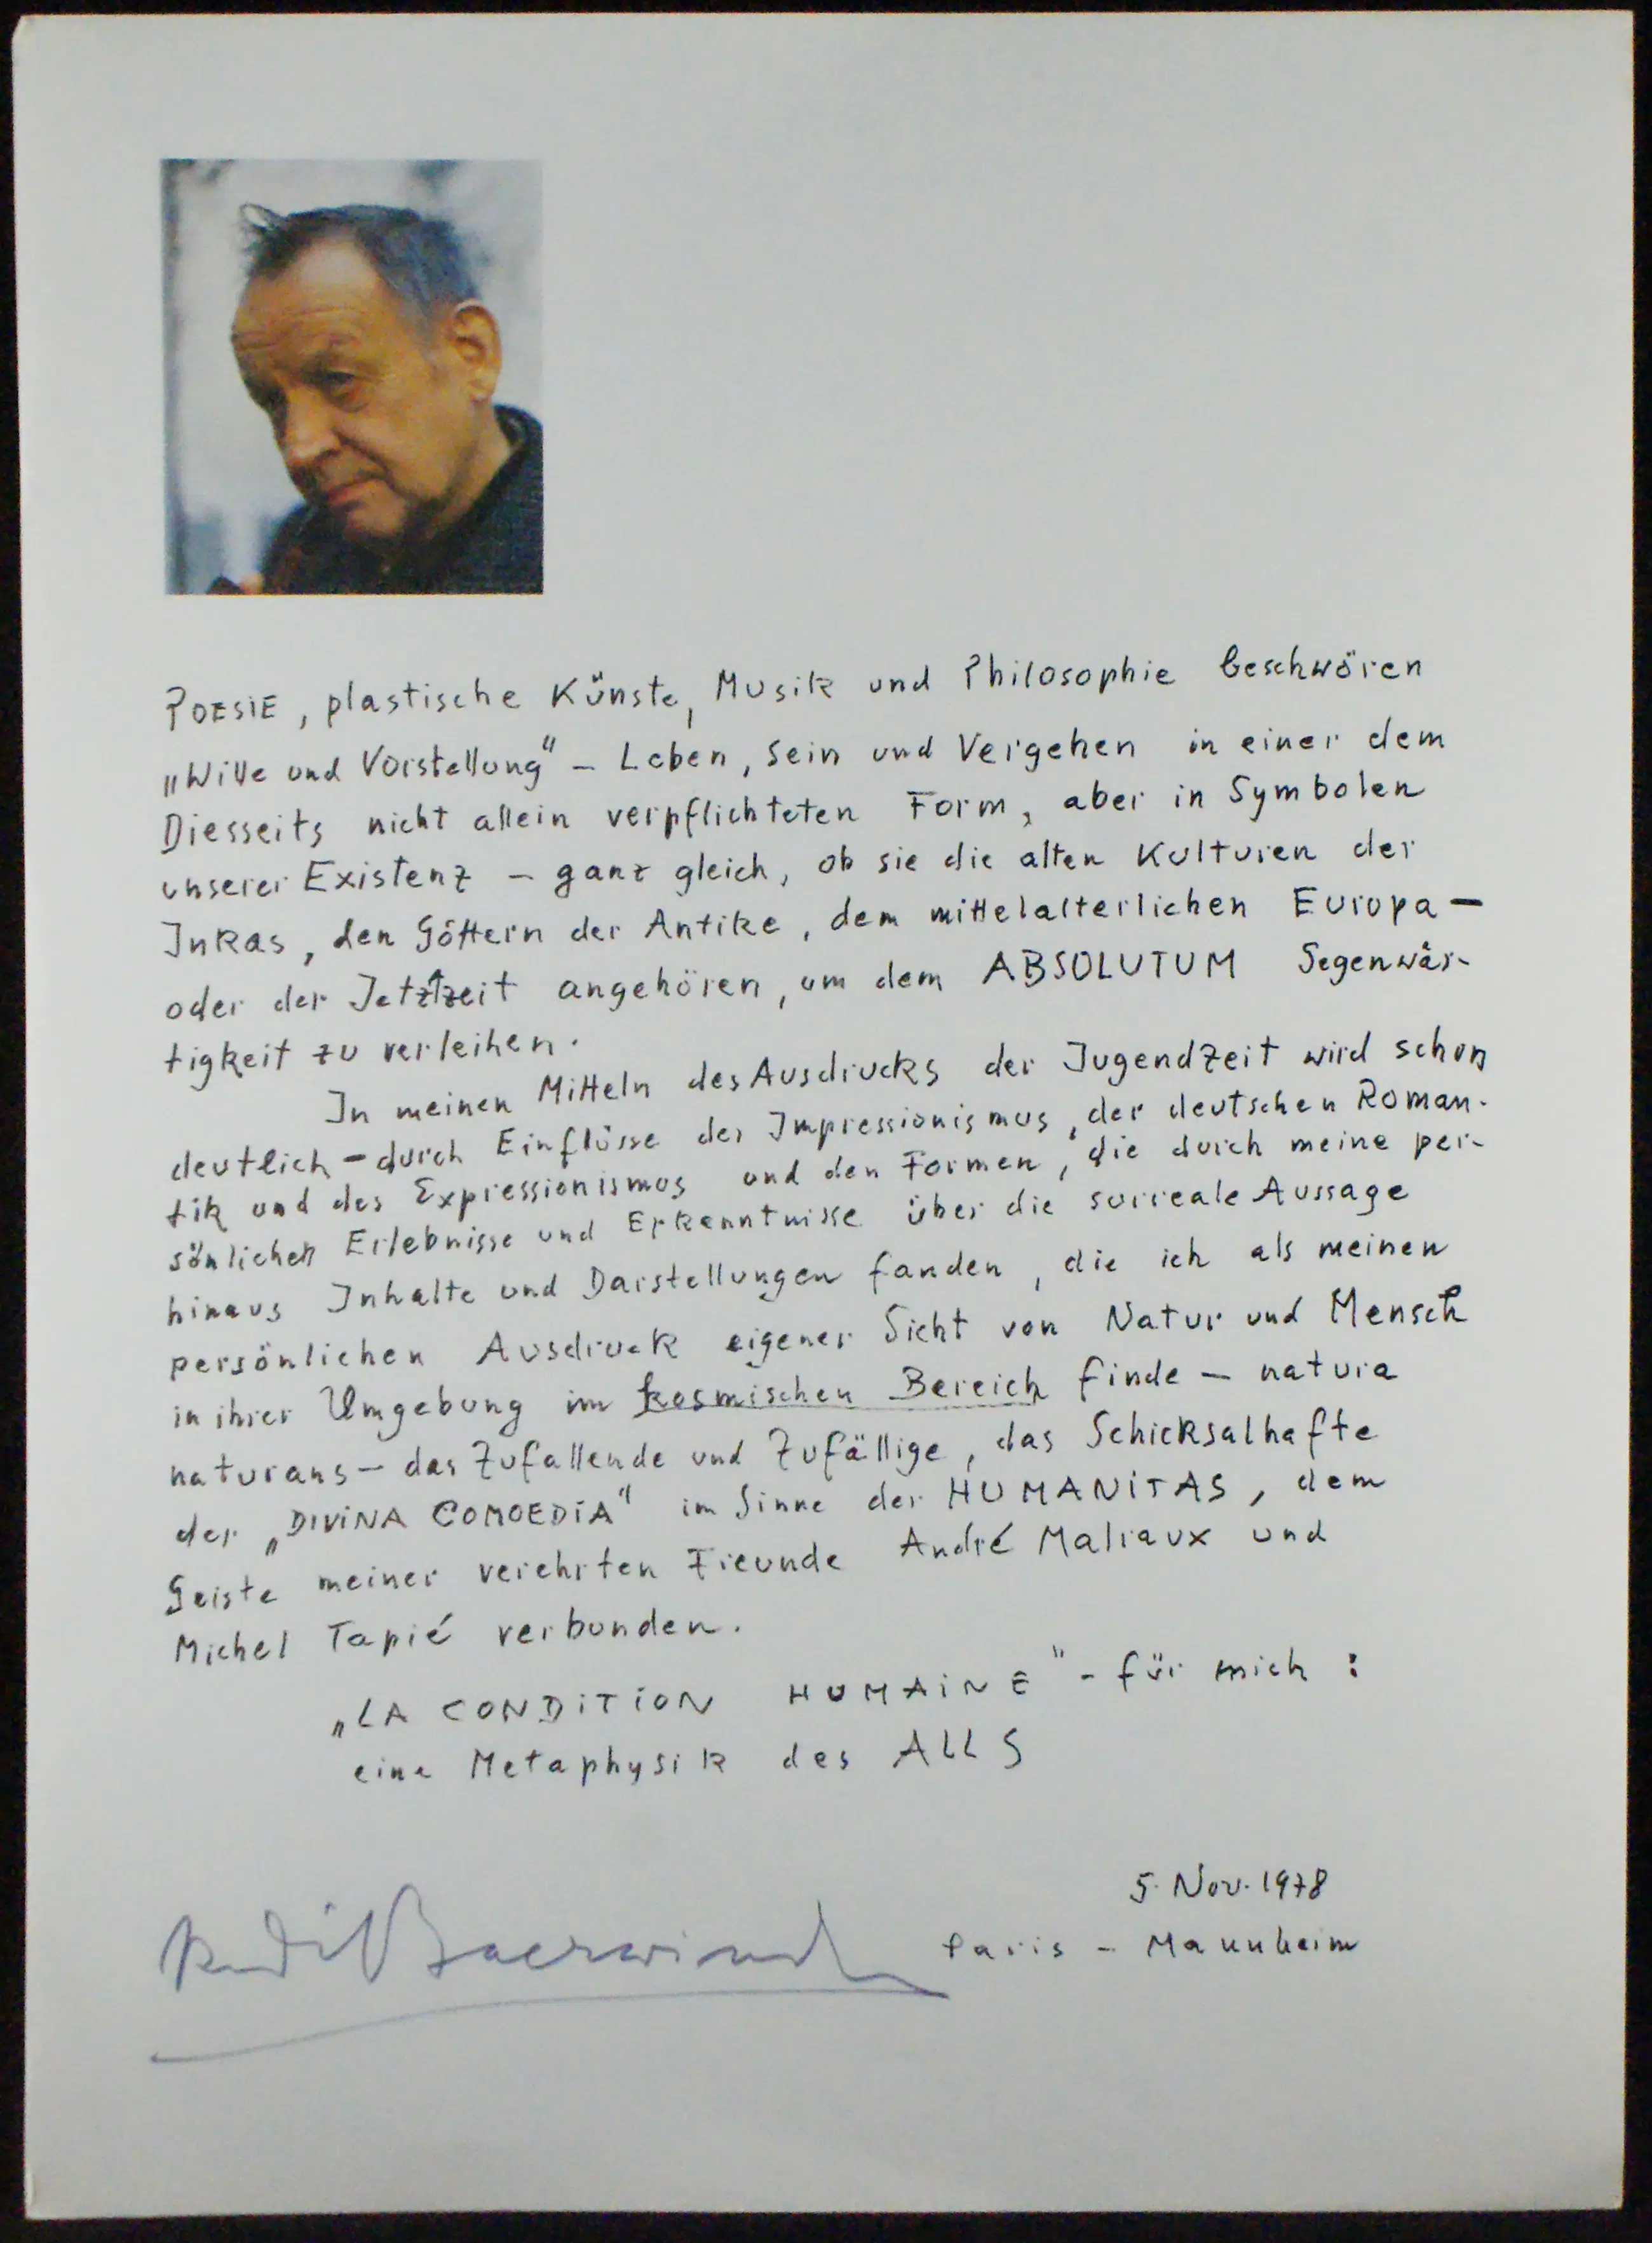 POESIE, plastische Künste, Musik und Philosophie beschwören
„Wille und Vorstellung" – Leben, Sein und Vergehen in einer dem
Diesseits nicht allein verpflichteten Form, aber in Symbolen
unserer Existenz – ganz gleich, ob sie die alten Kulturen der
Inkas, den Göttern der Antike, dem mittelalterlichen Europa –
oder der Jetztzeit angehören, um dem ABSOLUTUM Gegenwär-
tigkeit zu verleihen.
In meinen Mitteln des Ausdrucks der Jugendzeit wird schon
deutlich – durch Einflüsse des Impressionismus, der deutschen Roman-
tik und des Expressionismus und den Formen, die durch meine per-
sönlichen Erlebnisse und Erkenntnisse über die surreale Aussage
hinaus Inhalte und Darstellungen fanden, die ich als meinen
persönlichen Ausdruck eigener Sicht von Natur und Mensch
in ihrer Umgebung im kosmischen Bereich finde – natura
naturans – das Zufallende und Zufällige, das Schicksalhafte
der „DIVINA COMOEDIA" im Sinne der HUMANITAS, dem
Geiste meiner verehrten Freunde André Malraux und
Michel Tapié verbunden.
„LA CONDITION HUMAINE" - für mich :
eine Metaphysik des ALLS
5. Nov. 1978
Rudi Baerwind Paris – Mannheim